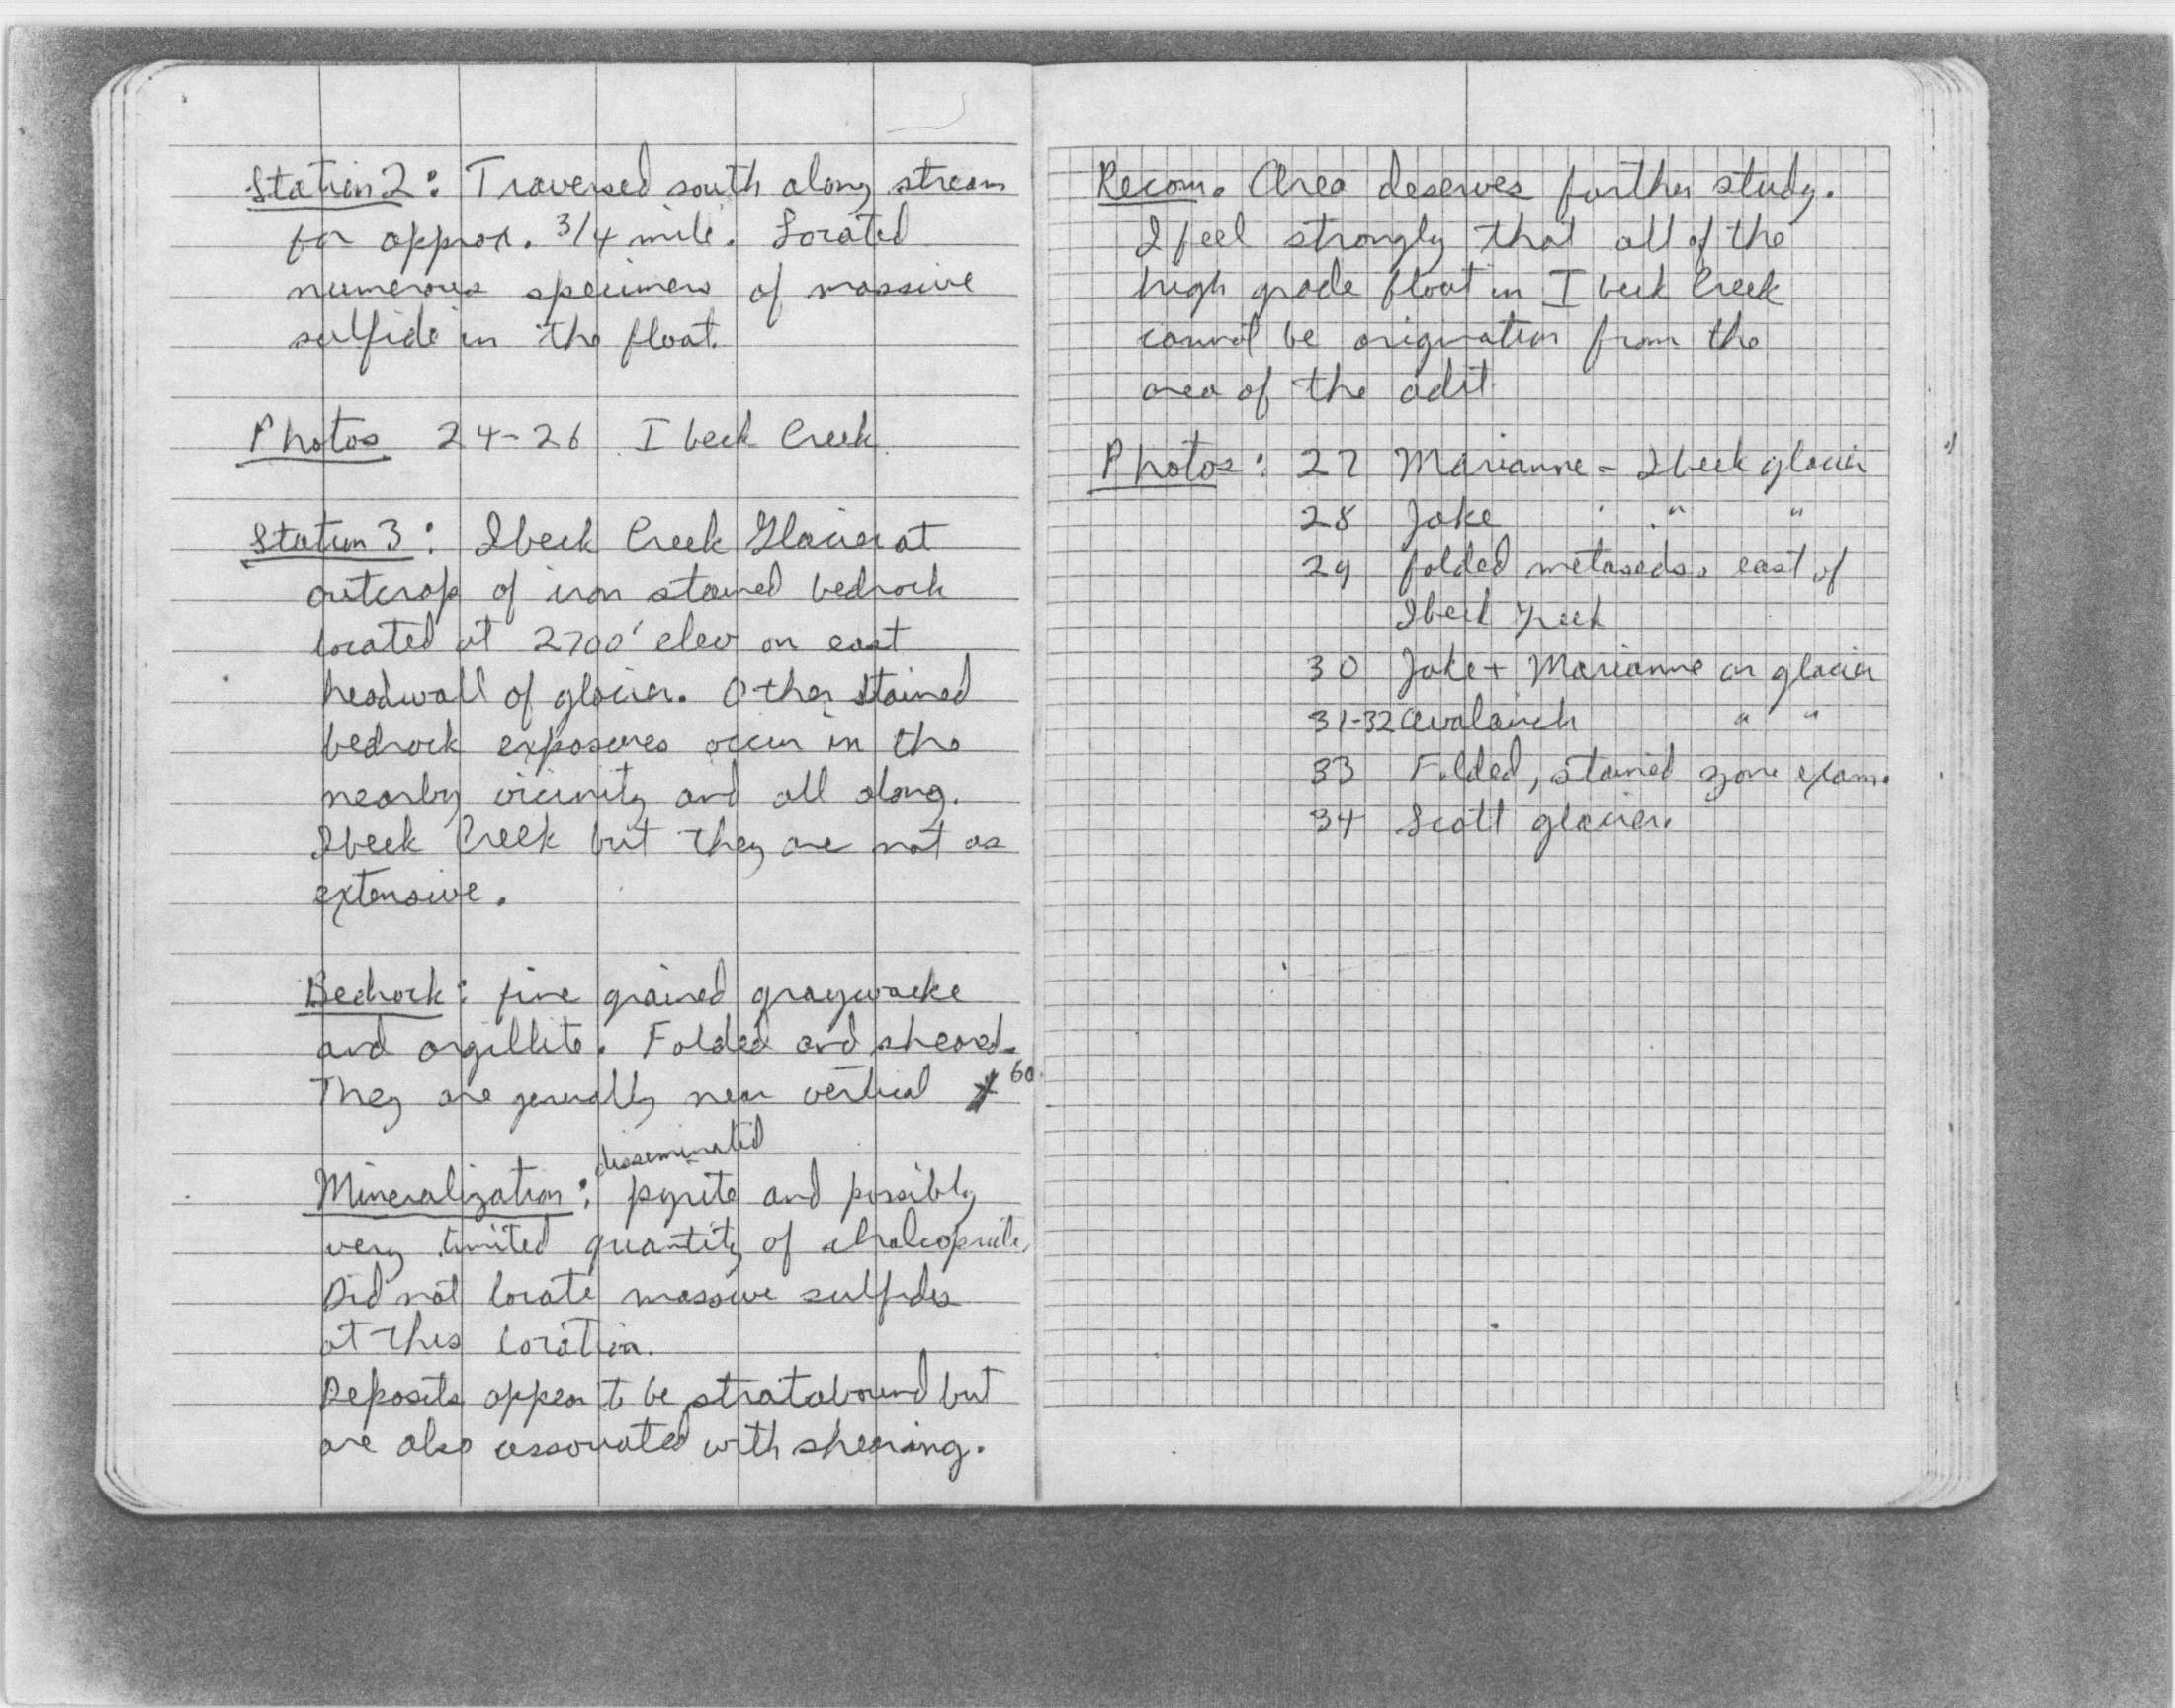 Station 2: Traversed south along stream
for approx. 3/4 mile. Located
numerous specimens of massive
sulfide in the float.
Photos 24-26 Ibeck Creek
Station 3: Ibeck Creek Glacier at
outcrop of iron stained bedrock
located at 2700' elev on east
headwall of glacier. Other stained
bedrock exposures occur in the
nearby vicinity and all along
Ibeck Creek but they are not as
extensive.
Bedrock: fine grained graywacke
and argillite. Folded and sheared.
They are generally near vertical 60
disseminated
Mineralization: pyrite and possibly
very limited quantity of chalcopyrite,
Did not locate massive sulfides
at this location.
Deposits appear to be stratabound but
are also associated with shearing.
Recom. Area deserves further study.
I feel strongly that all of the
high grade float in Ibeck Creek
cannot be origination from the
area of the adit
Photos: 27 Marianne - Ibeck glacier
28 Jake " "
29 folded metaseds. east of
Ibeck Creek
30 Jake + Marianne on glacier
31-32 avalanch " "
33 Folded, stained zone exam.
34 Scott glacier.